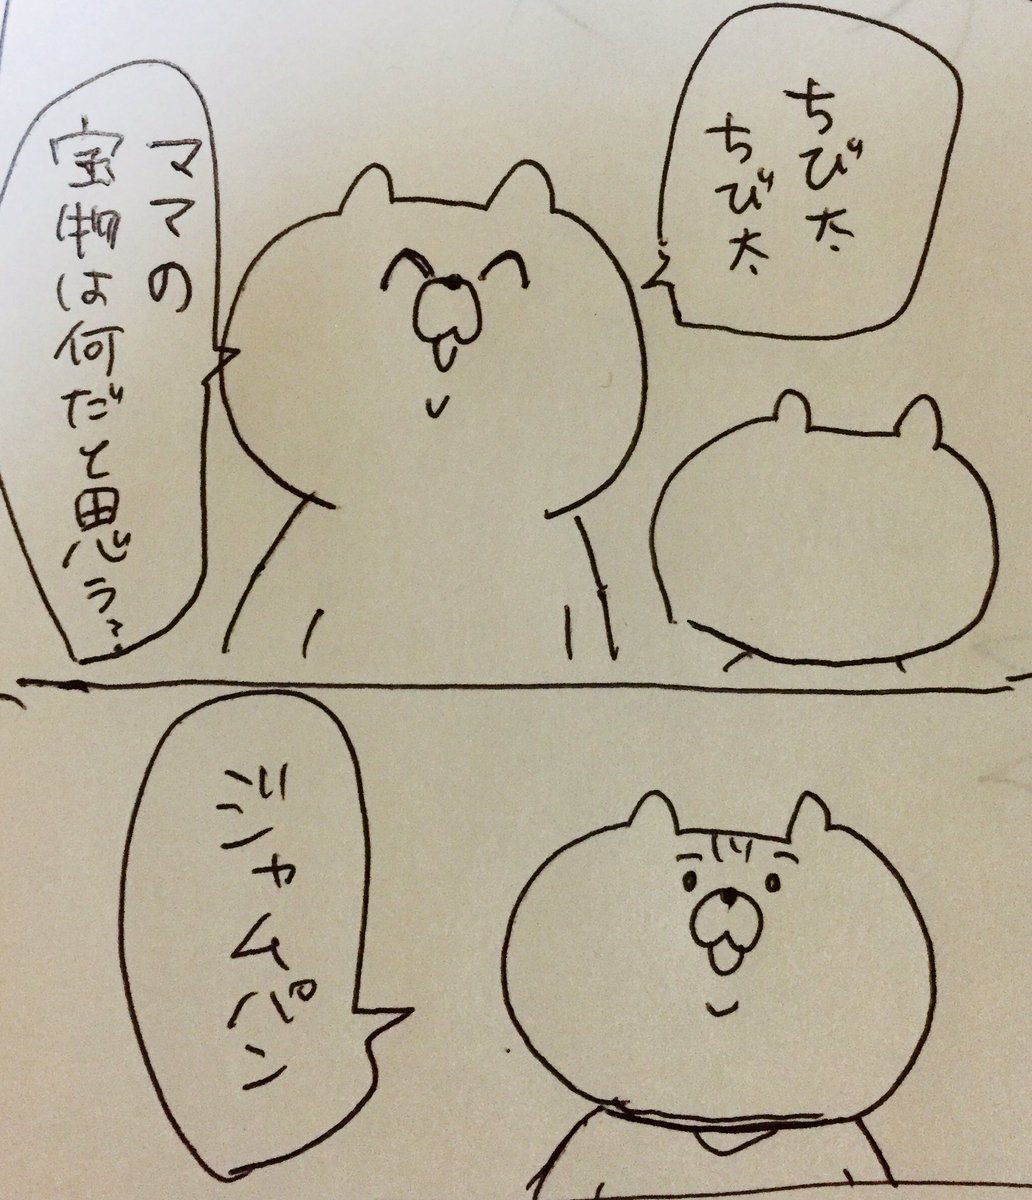 ちび太
ちび太
ママの
宝物は何だと思う?
ジャムパン